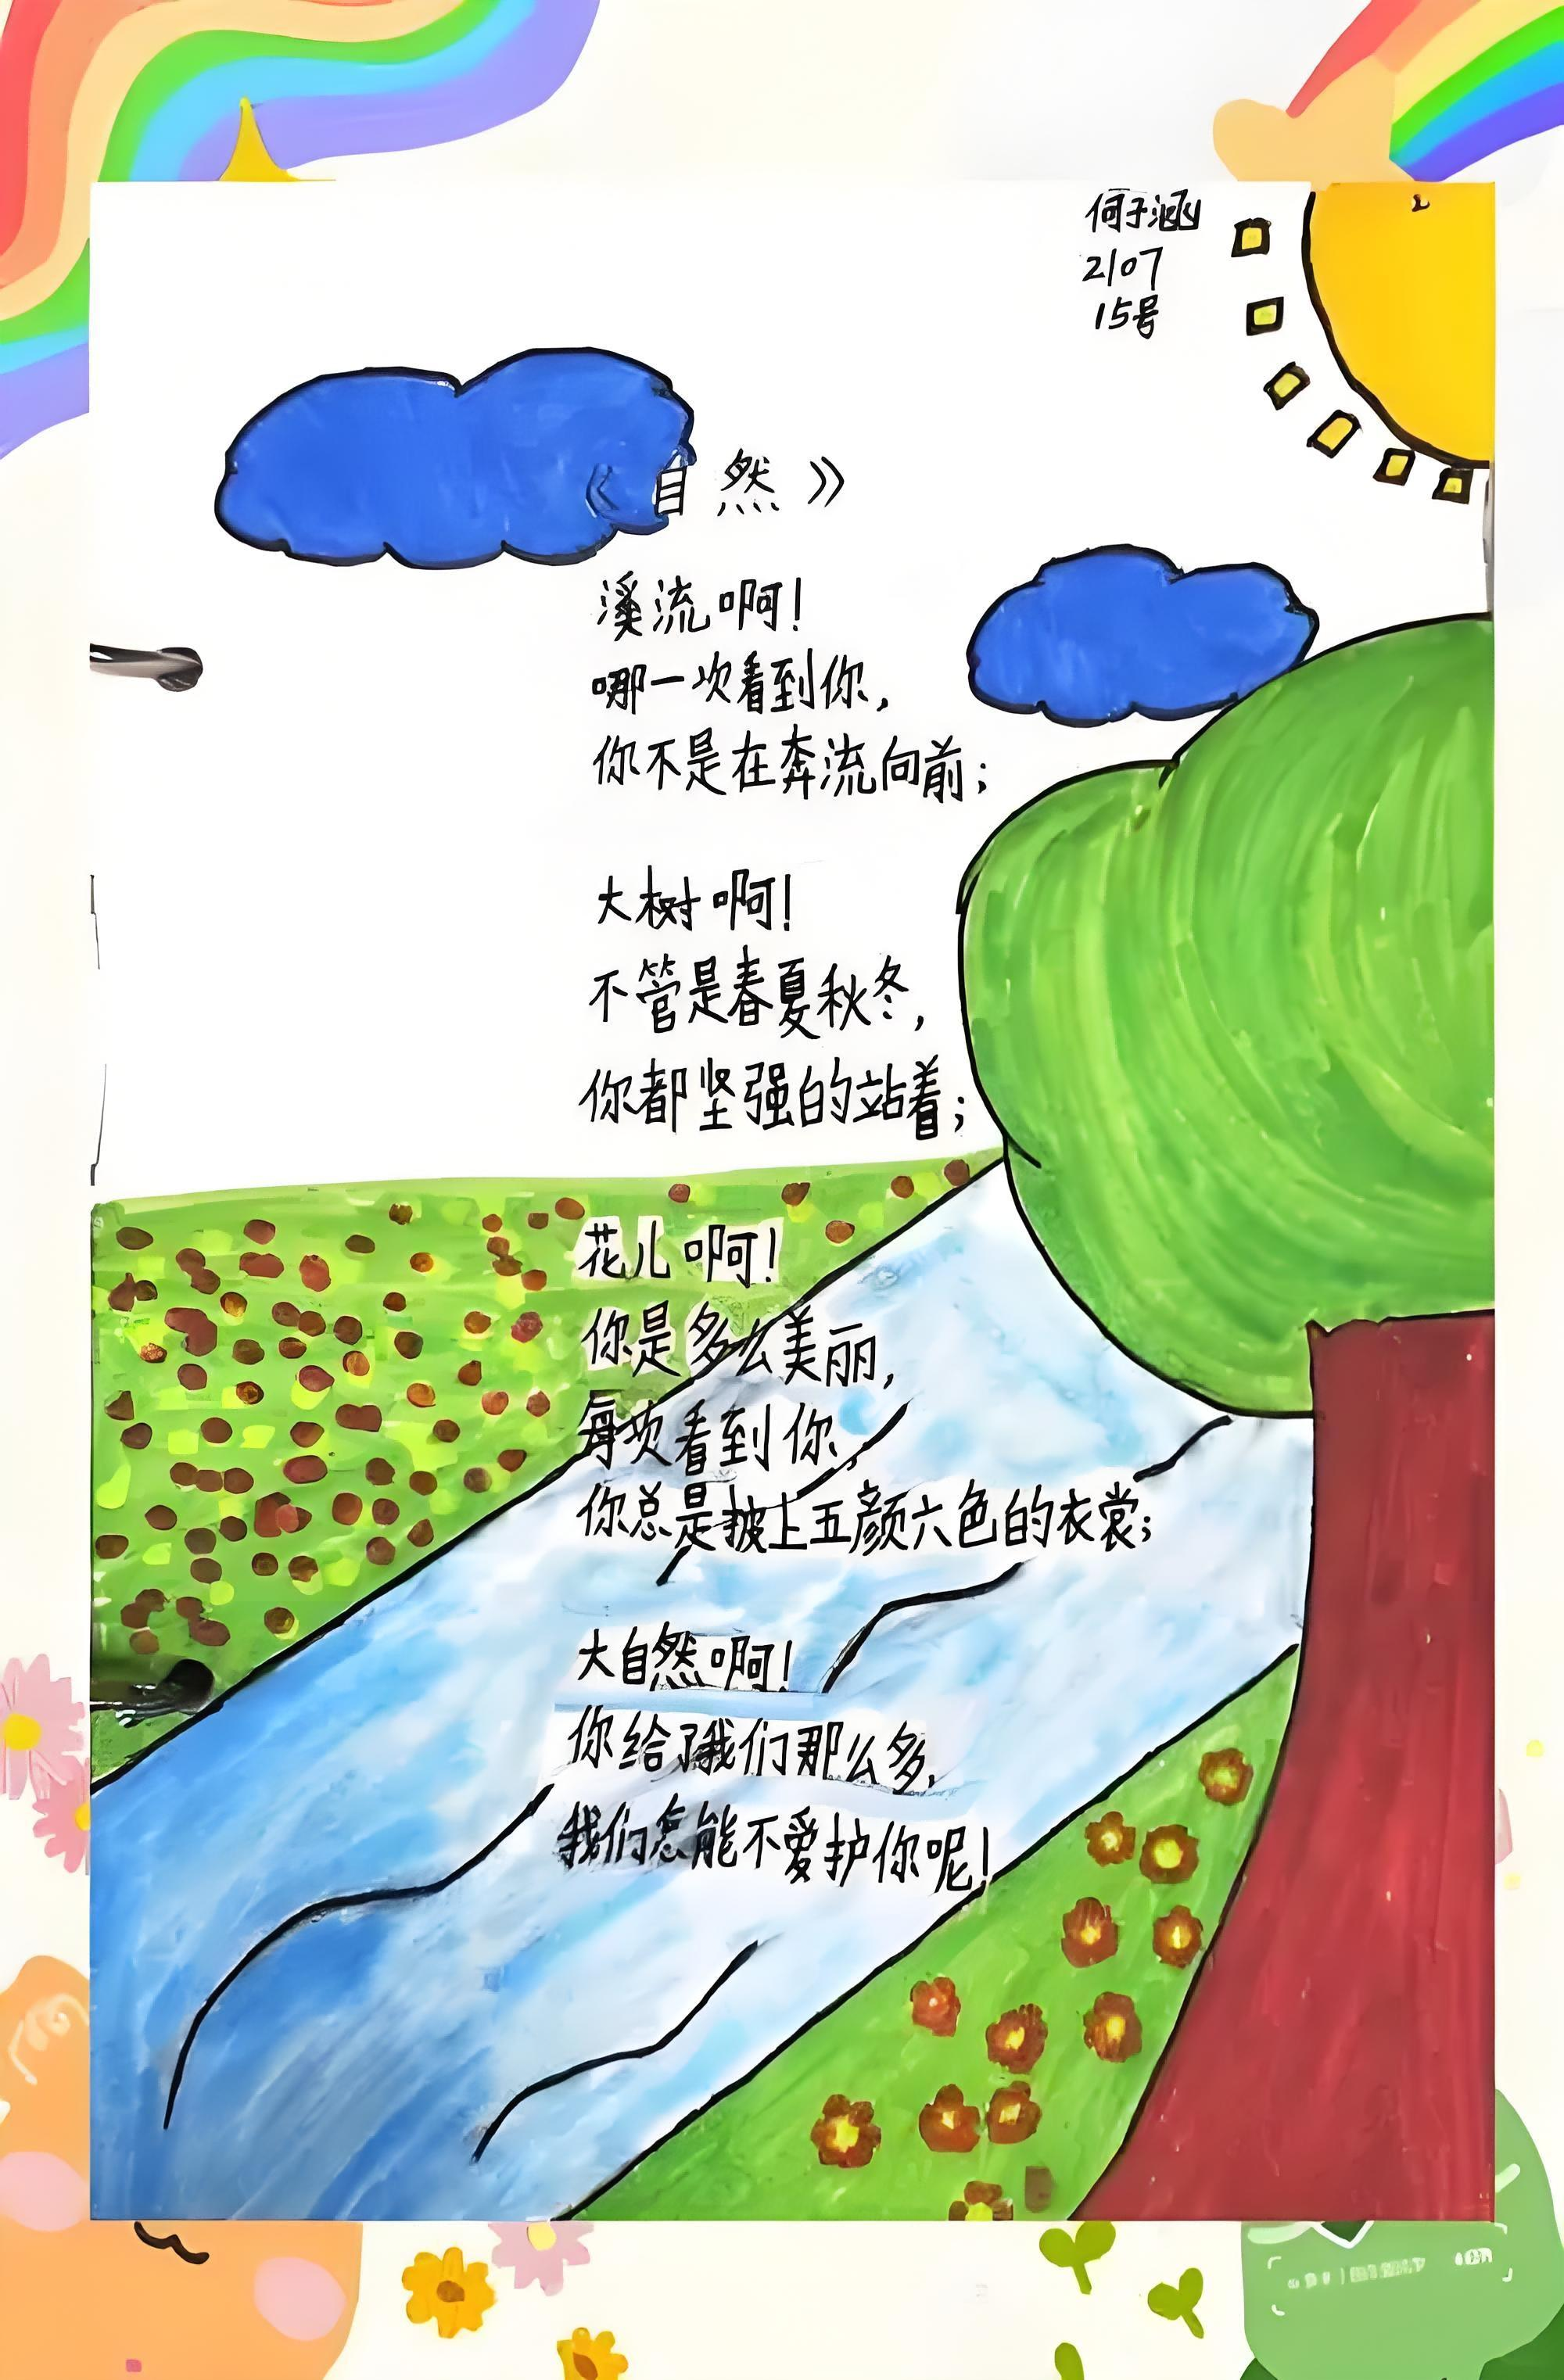 何子涵
2107
15号
《自然》
溪流啊!
哪一次看到你,
你不是在奔流向前;
大树啊!
不管是春夏秋冬,
你都坚强的站着;
花儿啊!
你是多么美丽,
每次看到你,
你总是披上五颜六色的衣裳;
大自然啊!
你给了我们那么多,
我们怎能不爱护你呢!